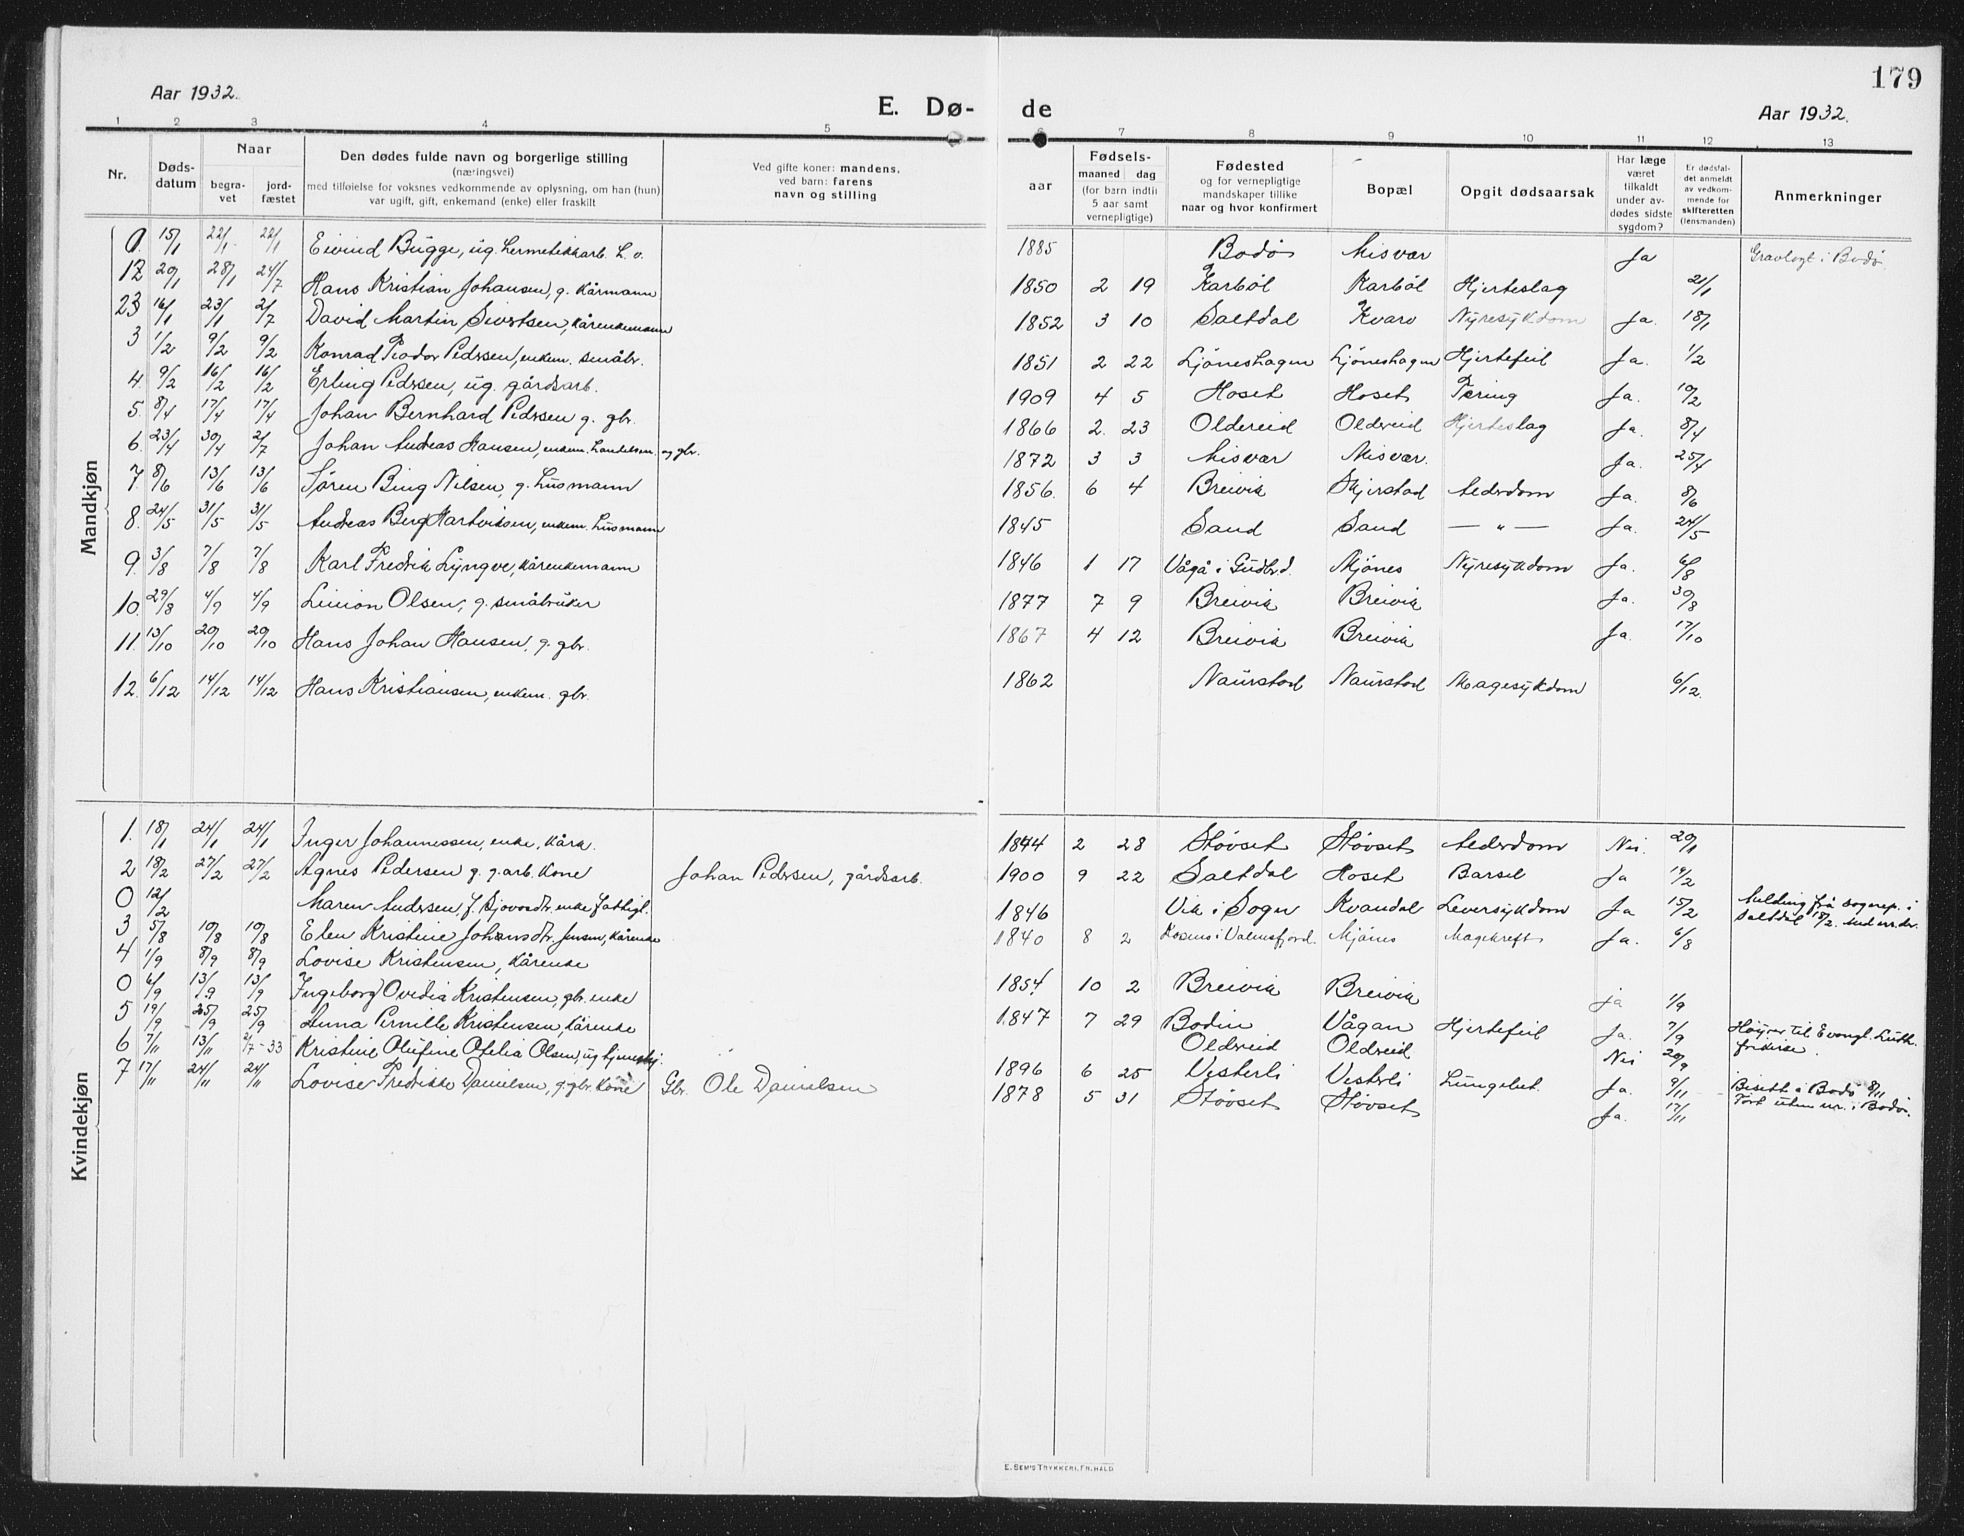 179
Aar 1932.
E. Dø- de
Aar 1932.
1 2 3 4 5 6 7 8 9 10 11 12 13
Nr.
Døds-
datum
Naar
begra-
vet
jord-
fæstet
Den dødes fulde navn og borgerlige stilling
(næringsvei)
med tilføielse for voksnes vedkommende av oplysning, om han (hun)
var ugift, gift, enkemand (enke) eller fraskilt
Ved gifte koner: mandens,
ved barn: farens
navn og stilling
aar
Fødsels-
maaned dag
(for barn indtil
5 aar samt
vernepligtige)
Fødested
og for vernepligtige
mandskaper tillike
naar og hvor konfirmert
Bopæl
Opgit dødsaarsak
Har læge
været
tilkaldt
under av-
dødes sidste
sygdom?
Er dødsfal-
det anmeldt
av vedkom-
mende for
skifteretten
(lensmanden)
Anmerkninger
Mandkjøn
0. 15/1 22/1 22/1 Eivind Bugge, ug. hermetikkarb. 1885 Bodø Misvær Ja Gravlagt i Bodø.
20/1 28/1 24/7 Hans Kristian Johansen, g. kårmann 1850 2 19 Karbøl Karbøl Hjerteslag 21/1
16/1 23/1 2/7 David Martin Sivertsen, kårenkemann 1852 3 10 Saltdal Kvarv Nyresykdom Ja. 18/1
3 1/2 9/2 9/2 Konrad Teodor Pedersen, enkem. småbr. 1851 2 22 Ljøneshagen Ljøneshagen Hjertefeil Ja. 1/2
4. 9/2 16/2 16/2 Erling Pedersen, ug. gårdsarb. 1909 4 5 Hoset Hoset Tæring Ja. 10/2
5. 8/4 17/4 17/4 Johan Bernhard Pedersen g. gbr. 1866 2. 23 Oldereid Oldereid Hjerteslag Ja. 8/4
6. 23/4 30/4 2/7 Johan Andreas Hansen, enkem. handelsm. og gbr. 1872 3 3 Misvær Misvær. Ja. 25/4
7. 8/6 13/6 13/6 Søren Bing Nilsen, g. husmann 1856. 6 4 Breivik Skjerstad Alderdom Ja. 8/6
8. 24/5 31/5 31/5 Andreas Berg Hartviksen, enkem. husmann 1845 Sand Sand — " — Ja. 24/5
9. 3/8 7/8 7/8 Karl Fredrik Lyngve, kårenkemann 1846 1 17 Vågå i Gudbr.d. Mjönes Nyresykdom Ja. 6/8
10. 29/8 4/9 4/9 Simon Olsen, g. småbruker 1877 7 9 Breivik Breivik Ja. 30/8
11. 13/10 20/10 20/10 Hans Johan Hansen, g. gbr. 1867 4 12 Breivik Breivik Ja. 17/10
12. 6/12 14/12 14/12 Hans Kristiansen, enkem. gbr. 1862 Naurstad Naurstad Magesykdom 6/12.
Kvindekjøn
1. 18/1 24/1 24/1 Inger Johannessen, enke, kårk. 1844 2 28 Støvset Støvset Alderdom Nei. 20/1
2 18/2 27/2 27/2 Agnes Pedersen g. g.arb. kone Johan Pedersen, gårdsarb. 1900 9 22 Saltdal Hoset Barsel Ja 19/2
0 12/2 Maren Andersen, enke 1846 Vik i Sogn Kvandal Leversykdom Ja 15/2 Melding frå sognep. i
Saltdal 18/2.
3 5/8 10/8 10/8 Elen Kristine Johansdtr. Jensen, kårenke 1840 8 2 Kosmo i Valnesfjord. Mjönes Magekreft Ja. 6/8
4 1/9 8/9 8/9 Lovise Kristensen, kårenke 1854 10 2 Breivik Breivik ja 1/9
0 6/9 13/9 13/9 Ingeborg Ovedia Kristensen, gbr. enke 1847 7 29 Bodin Vågan Hjertefeil Ja. 7/9 Höyrer til Evangl. Luth.
frikirke.
5 19/9 25/9 25/9 Anna Pernille Kristensen, kårenke Oldereid Oldereid. Nei 20/9
6 7/11 13/11 2/7-33 Kristine Olufine Ofelia Olsen, ug tjenestepj. 1896 6 25 Vesterli Vesterli Lungebet. Ja. 9/11 Bisatt i Bodø 8/11
Ført uten nr. i Bodø.
7 17/11 24/11 24/11 Lovise Fredrikke Danielsen, g. gbr. kone Gbr. Ole Danielsen 1878 5 31 Støvset Støvset Ja. 17/11
E. SEM'S TRYKKERI, FR. HALD